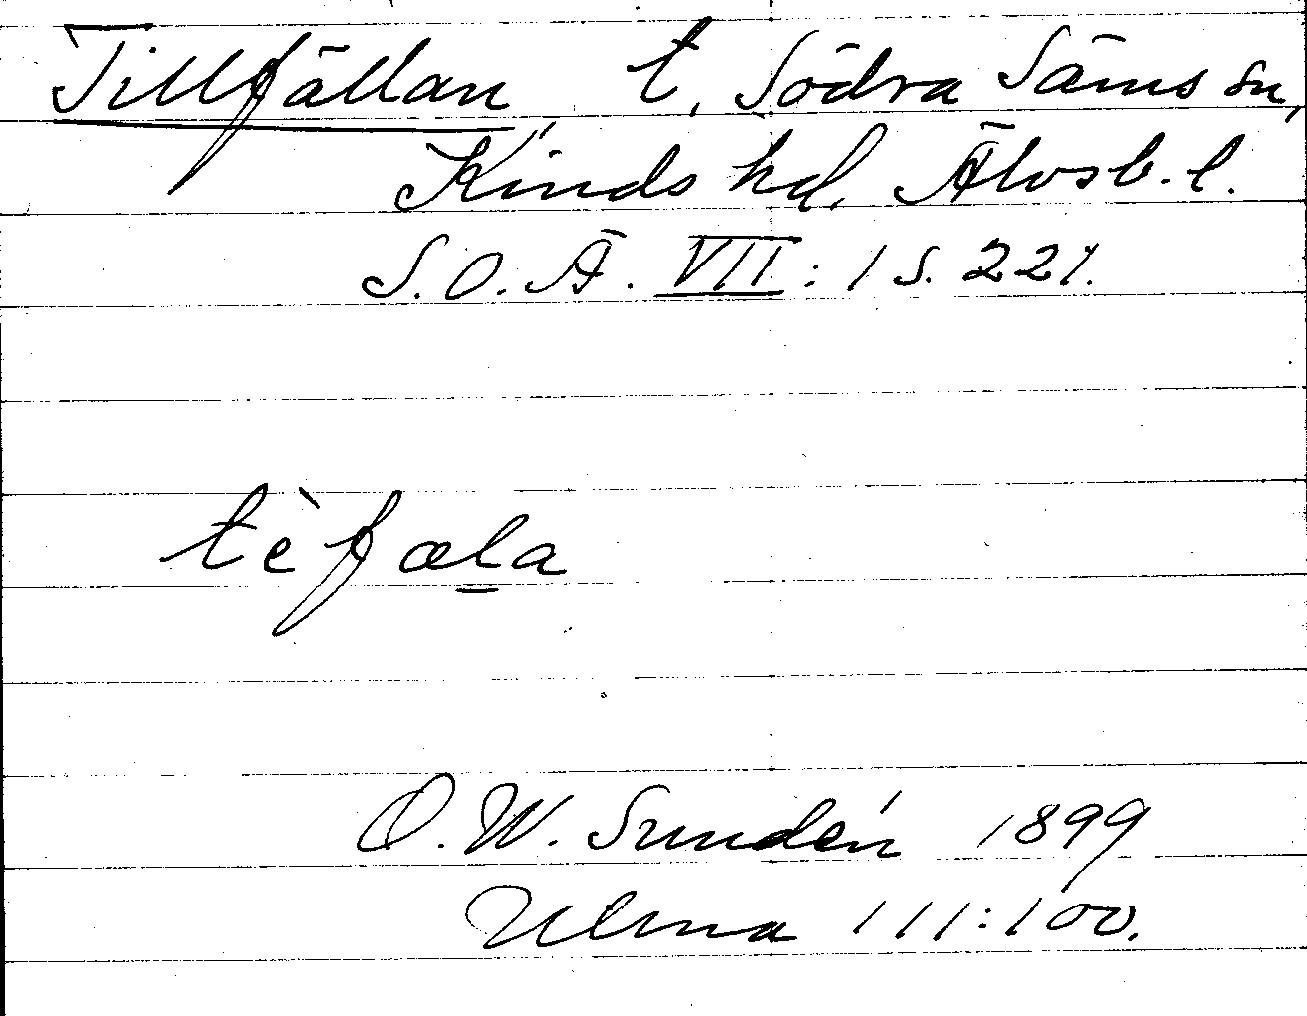 Tillfällan t. Södra Säms sn,
Kinds hd, Älvsb. l.
S. O. Ä. VII : 1 s. 221.
tèfæla
O. W. Sundén 1899
Ulma 111:100.